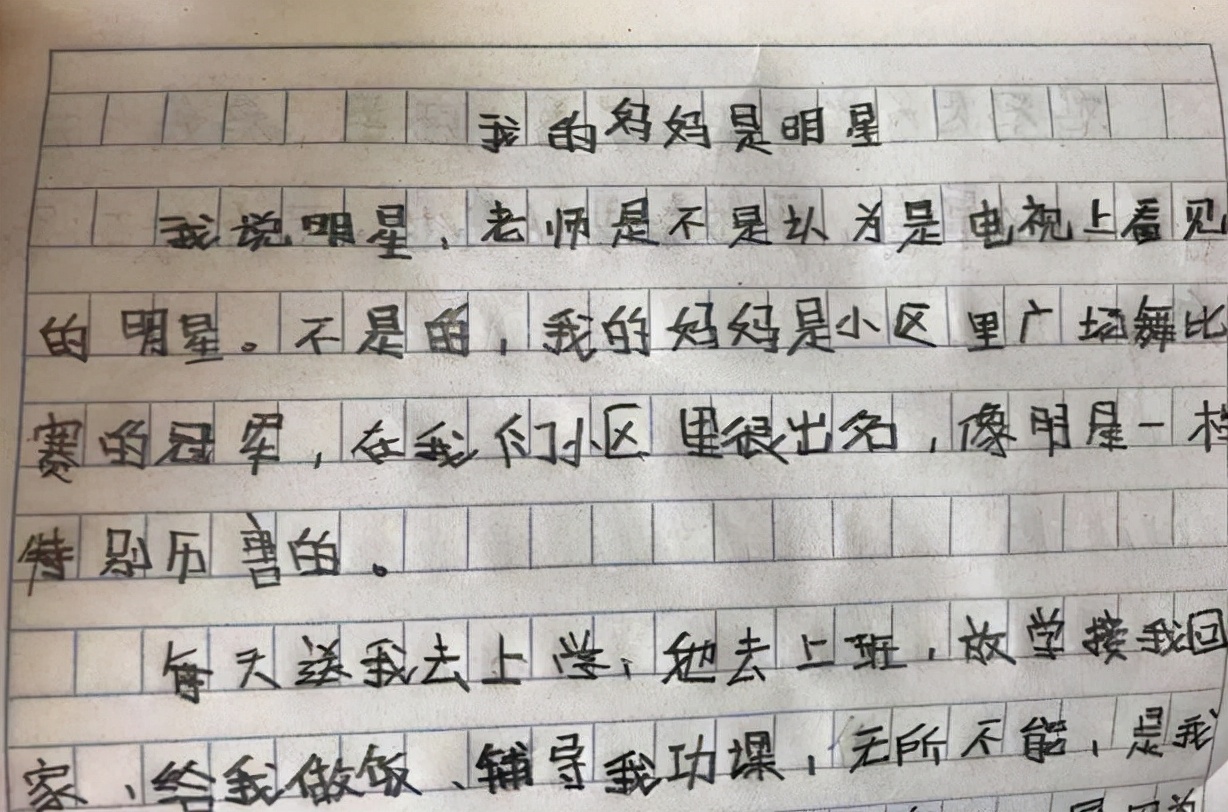 我的妈妈是明星
我说明星，老师是不是认为是电视上看见
的明星。不是的，我的妈妈是小区里广场舞比
赛的冠军，在我们小区里很出名，像明星一样
特别历害的。
每天送我去上学，她去上班，放学接我回
家、给我做饭、辅导我功课，无所不能，是我